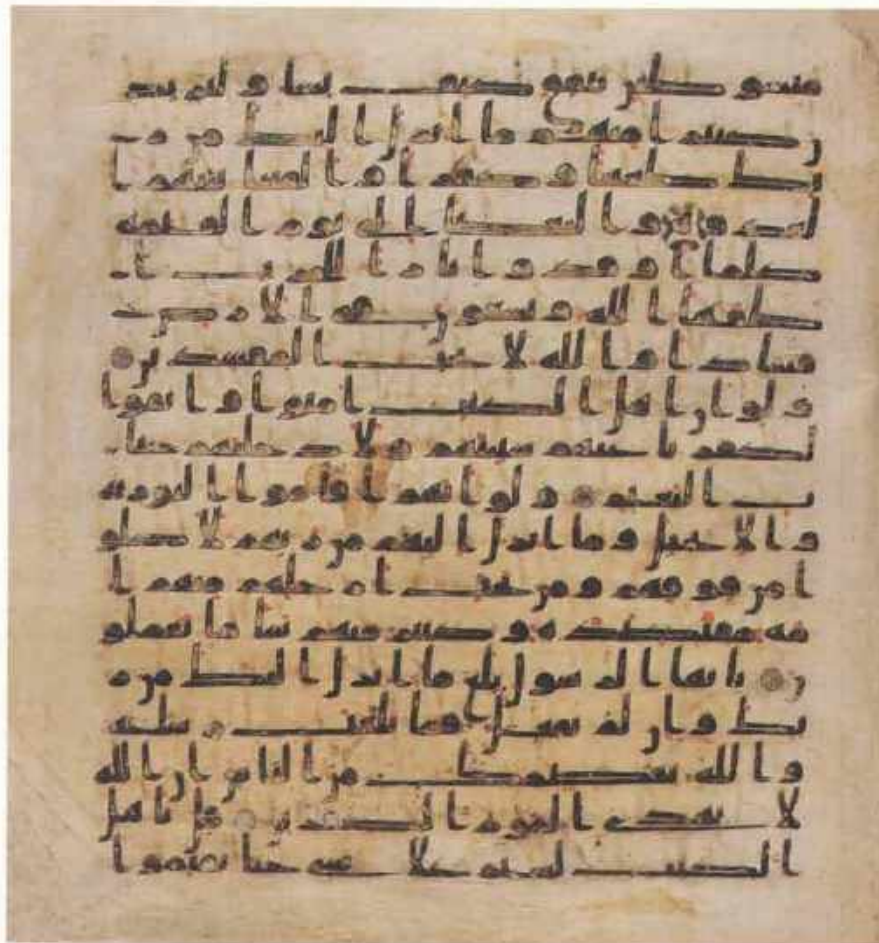 مبسوطتن ينفق كيف يشا وليزيد
ن كثيرا منهم ما انزل اليك من ر
بك طغينا وكفرا والقينا بينهم ا
لعدوة والبغضا الى يوم القيمة
كلما اوقدوا نارا للحرب ا
طفاها الله ويسعون في الارض
فسادا والله لا يحب المفسدين
ولو ان اهل الكتب امنوا واتقوا
لكفرنا عنهم سياتهم ولادخلنهم جنا
ت النعيم ولو انهم اقاموا التورية
والانجيل وما انزل اليهم من ربهم لاكلو
ا من فوقهم ومن تحت ارجلهم منهم ا
مة مقتصدة وكثير منهم سا ما يعملو
ن يايها الرسول بلغ ما انزل اليك من ر
بك وان لم تفعل فما بلغت رسلته
والله يعصمك من الناس ان الله
لا يهدي القوم الكفرين قل ياهل
الكتب لستم على شي حتى تقيموا